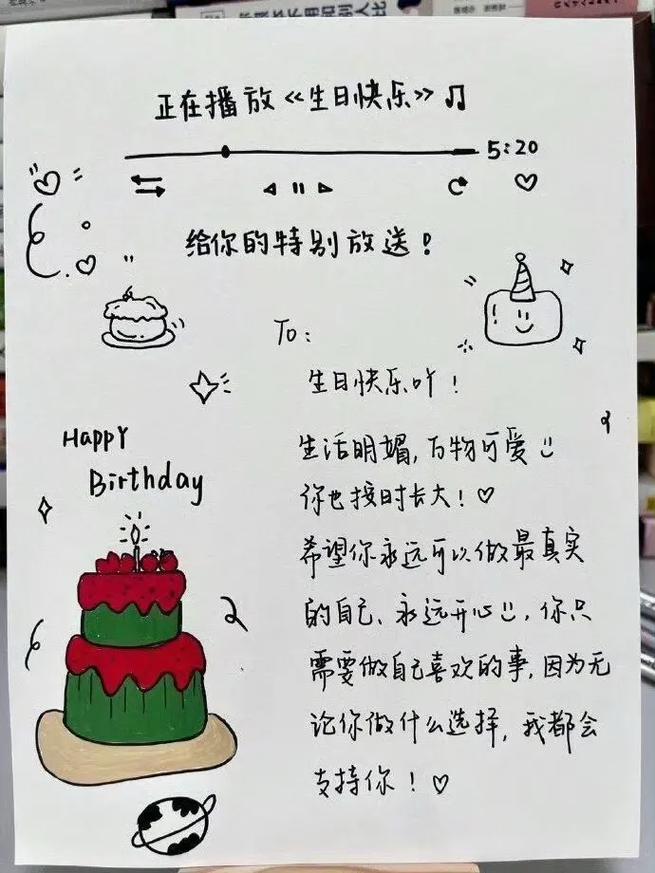 正在播放《生日快乐》♫
5:20
给你的特别放送！
To：
生日快乐吖！
生活明媚，万物可爱
你也按时长大！♡
Happy
Birthday
希望你永远可以做最真实
的自己、永远开心，你只
需要做自己喜欢的事，因为无
论你做什么选择，我都会
支持你！♡